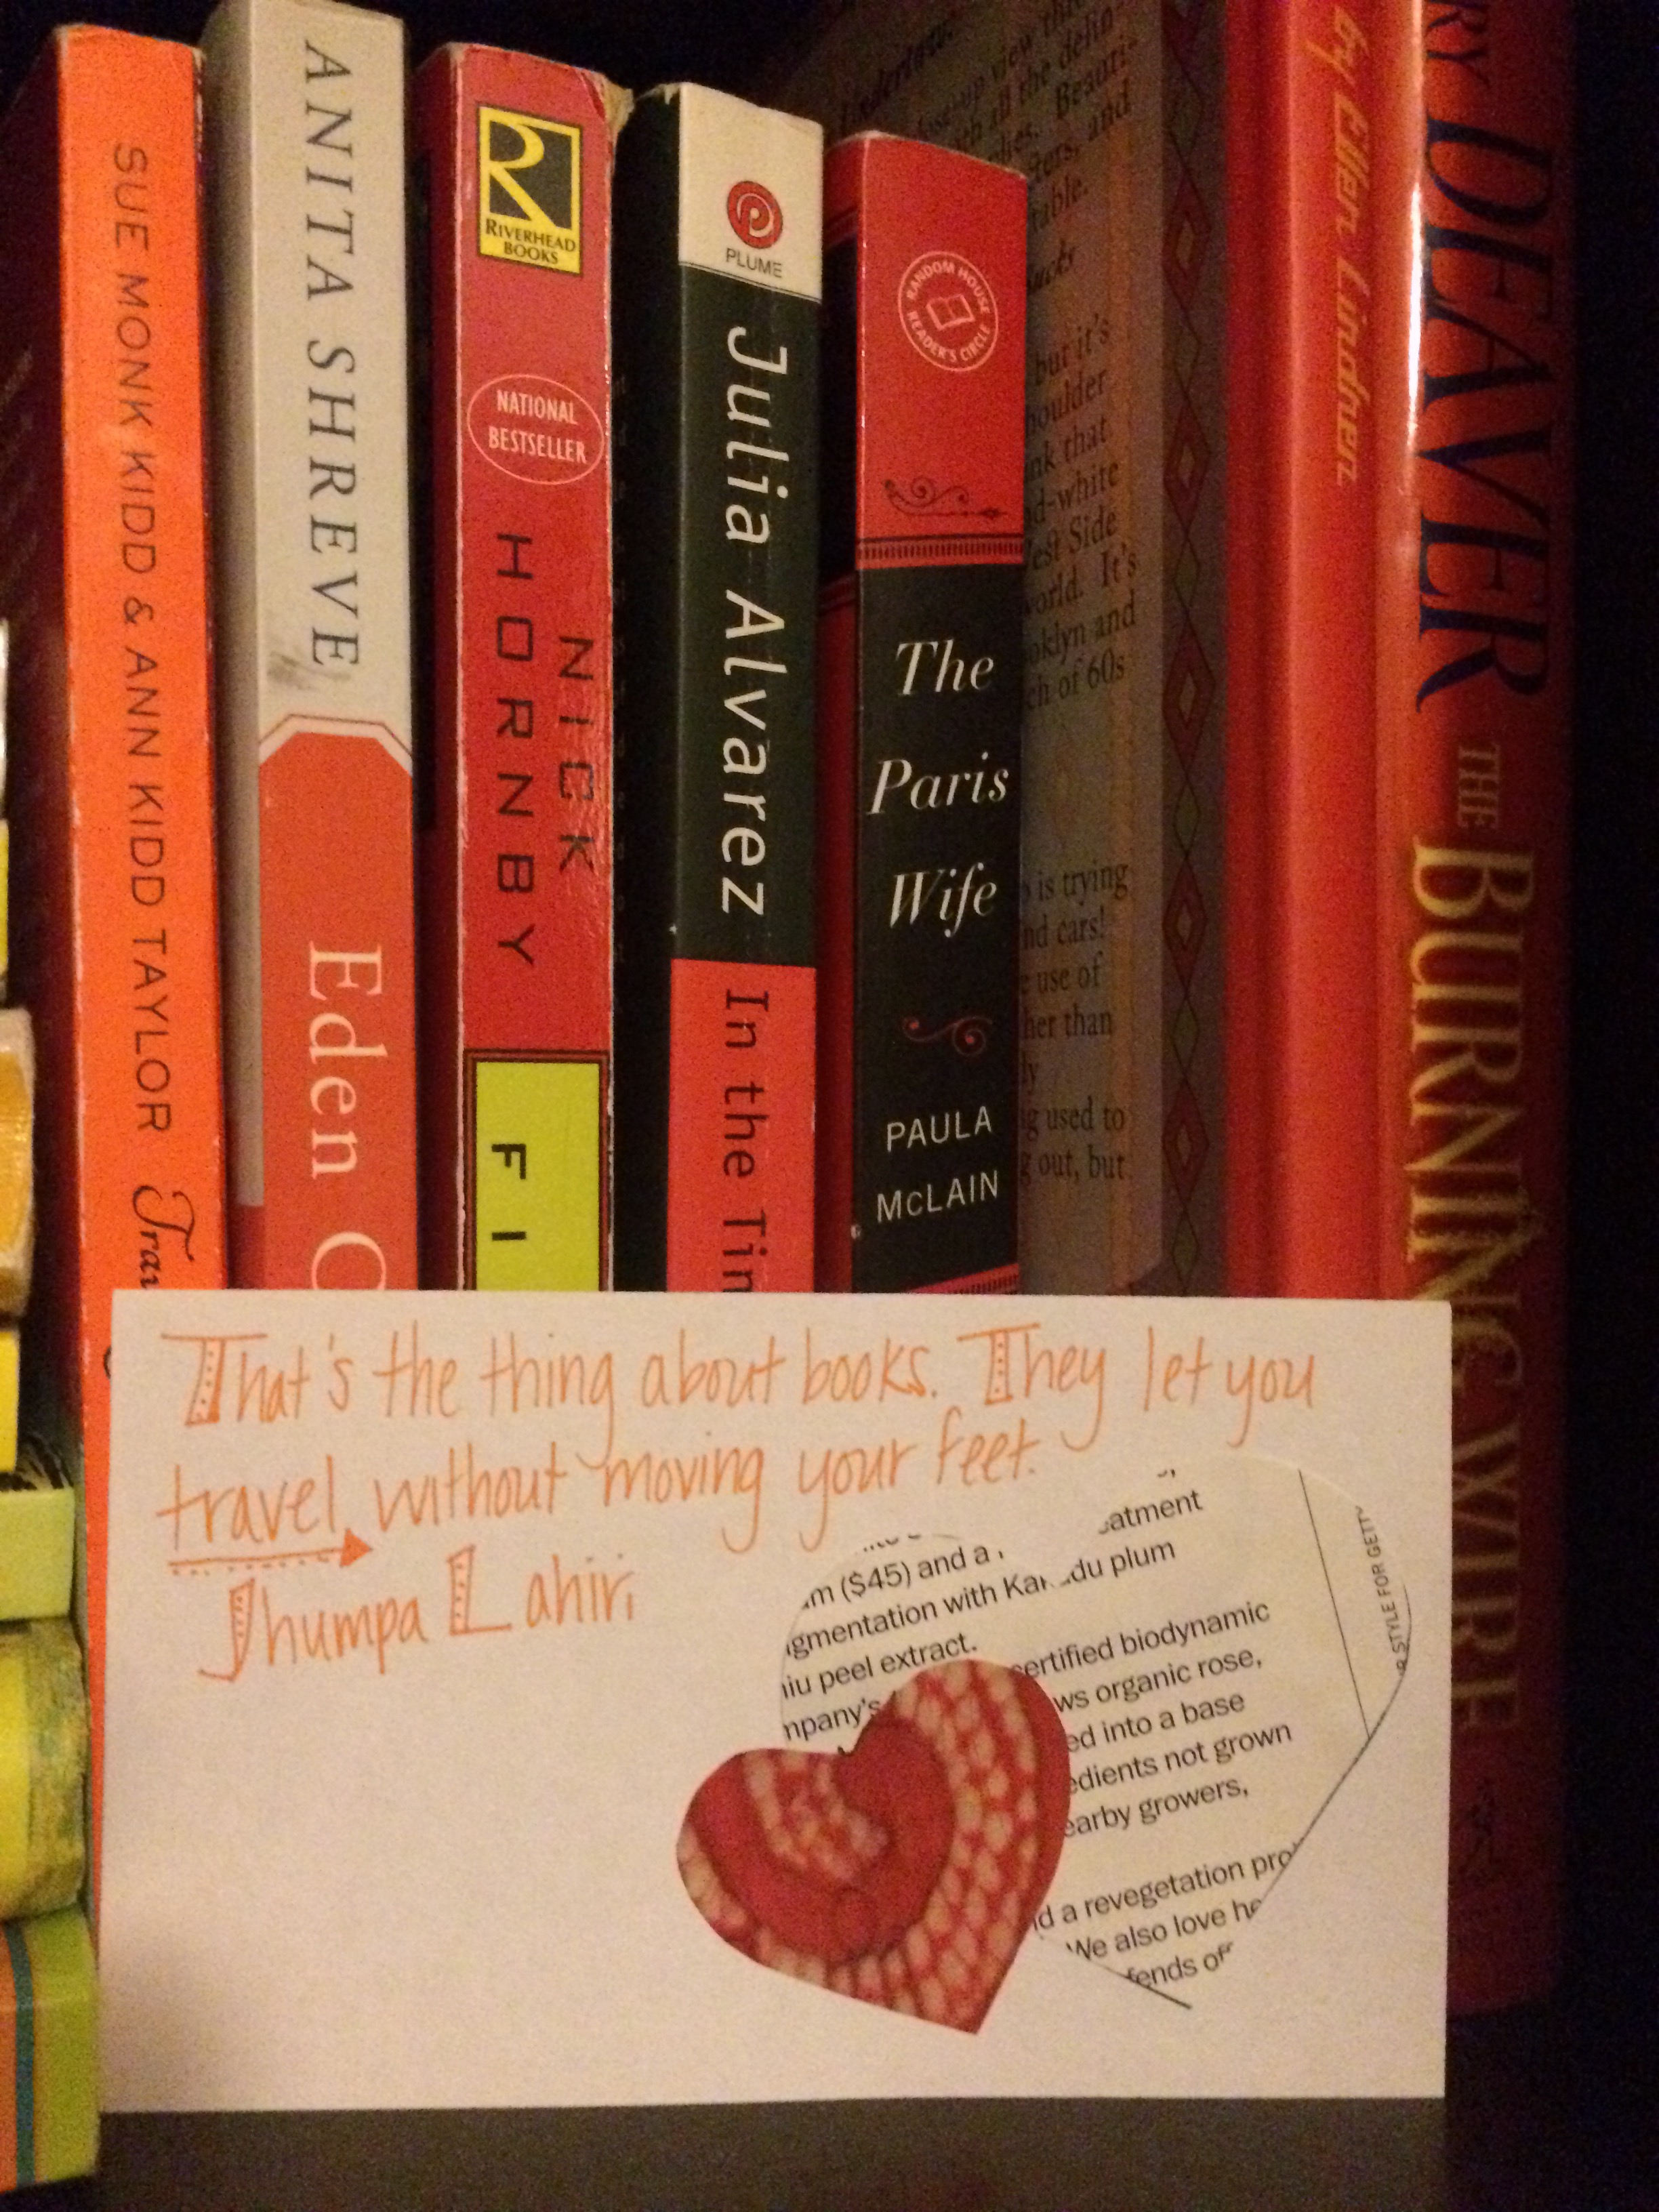 SUE MONK KIDD & ANN KIDD TAYLOR Trav
ANITA SHREVE
Eden
R
RIVERHEAD
BOOKS
NATIONAL
BESTSELLER
NICK
HORNBY
FI
PLUME
Julia Alvarez
In the Tim
RANDOM HOUSE
READER'S CIRCLE
The
Paris
Wife
PAULA
McLAIN
close-up view
all the defin-
Beauti-
and
table.
but it's
oulder
nk that
d-white
est Side
world. It's
oklyn and
ch of 60s
is trying
nd cars!
use of
her than
ly
g used to
g out, but
by Ellen Lindner
RY DEAVER THE BURNING WIRE
That's the thing about books. They let you
travel without moving your feet.
Jhumpa Lahiri
eatment
m ($45) and a
gmentation with Ka du plum
iu peel extract.
certified biodynamic
mpany's
ws organic rose,
ed into a base
edients not grown
earby growers,
d a revegetation pro
We also love he
fends of
STYLE FOR GETTY